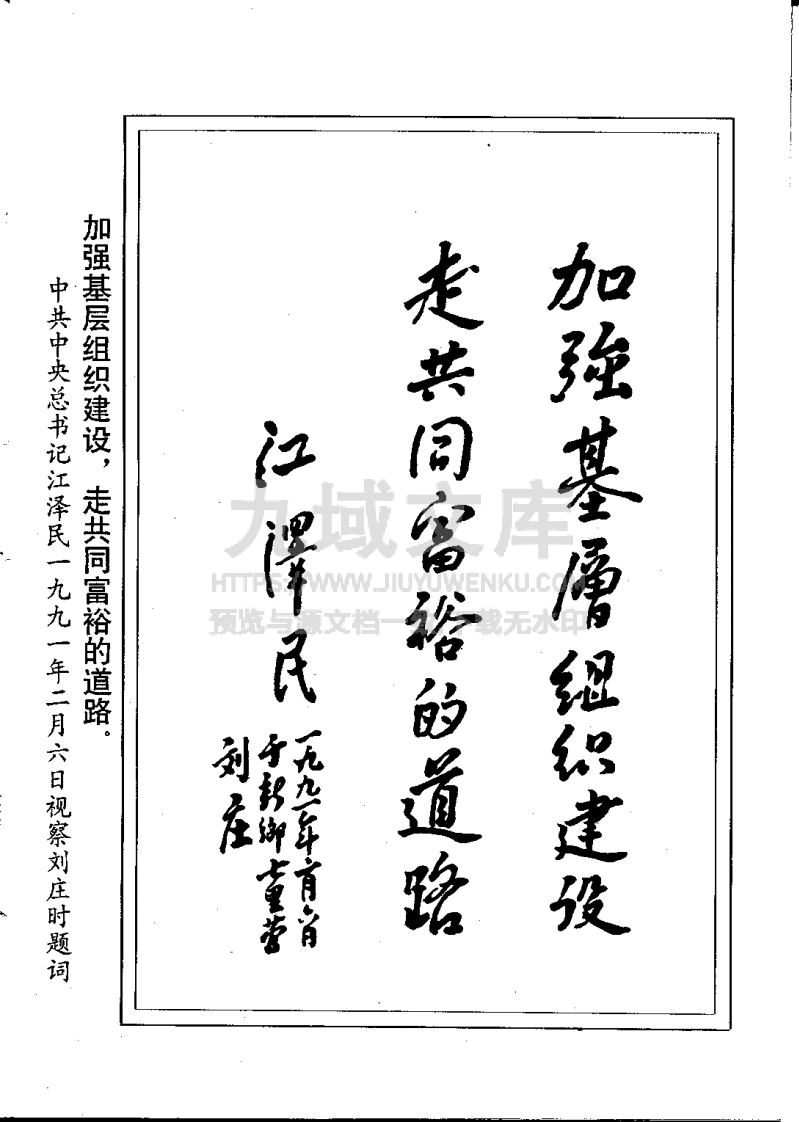 加強基層组织建设
走共同富裕的道路
江澤民
一九九一年二月六日
于新鄉七里营
刘庄
加强基层组织建设，走共同富裕的道路.
中共中央总书记江泽民一九九一年二月六日视察刘庄时题词
九域文库
HTTPS://WWW.JIUYUWENKU.COM
预览与源文档一致 下载无水印